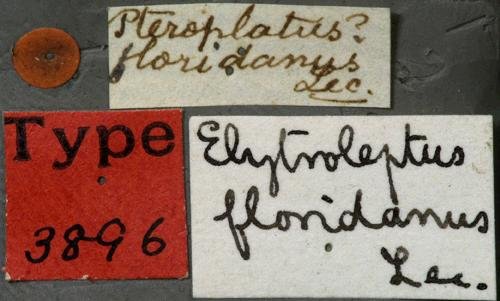 Pteroplatus?
floridanus
Lec.
Type
3896
Elytroleptus
floridanus
Lec.